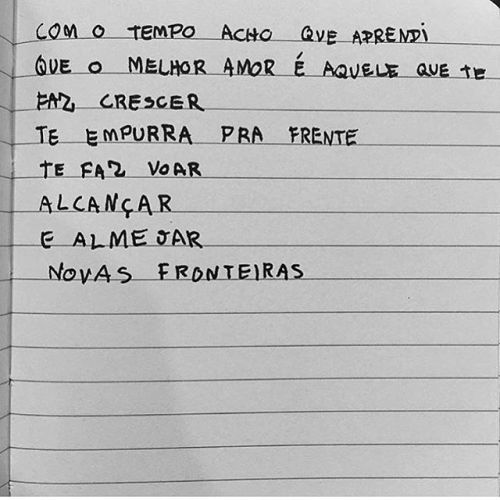 COM O TEMPO ACHO QUE APRENDI
QUE O MELHOR AMOR É AQUELE QUE TE
FAZ CRESCER
TE EMPURRA PRA FRENTE
TE FAZ VOAR
ALCANÇAR
E ALMEJAR
NOVAS FRONTEIRAS